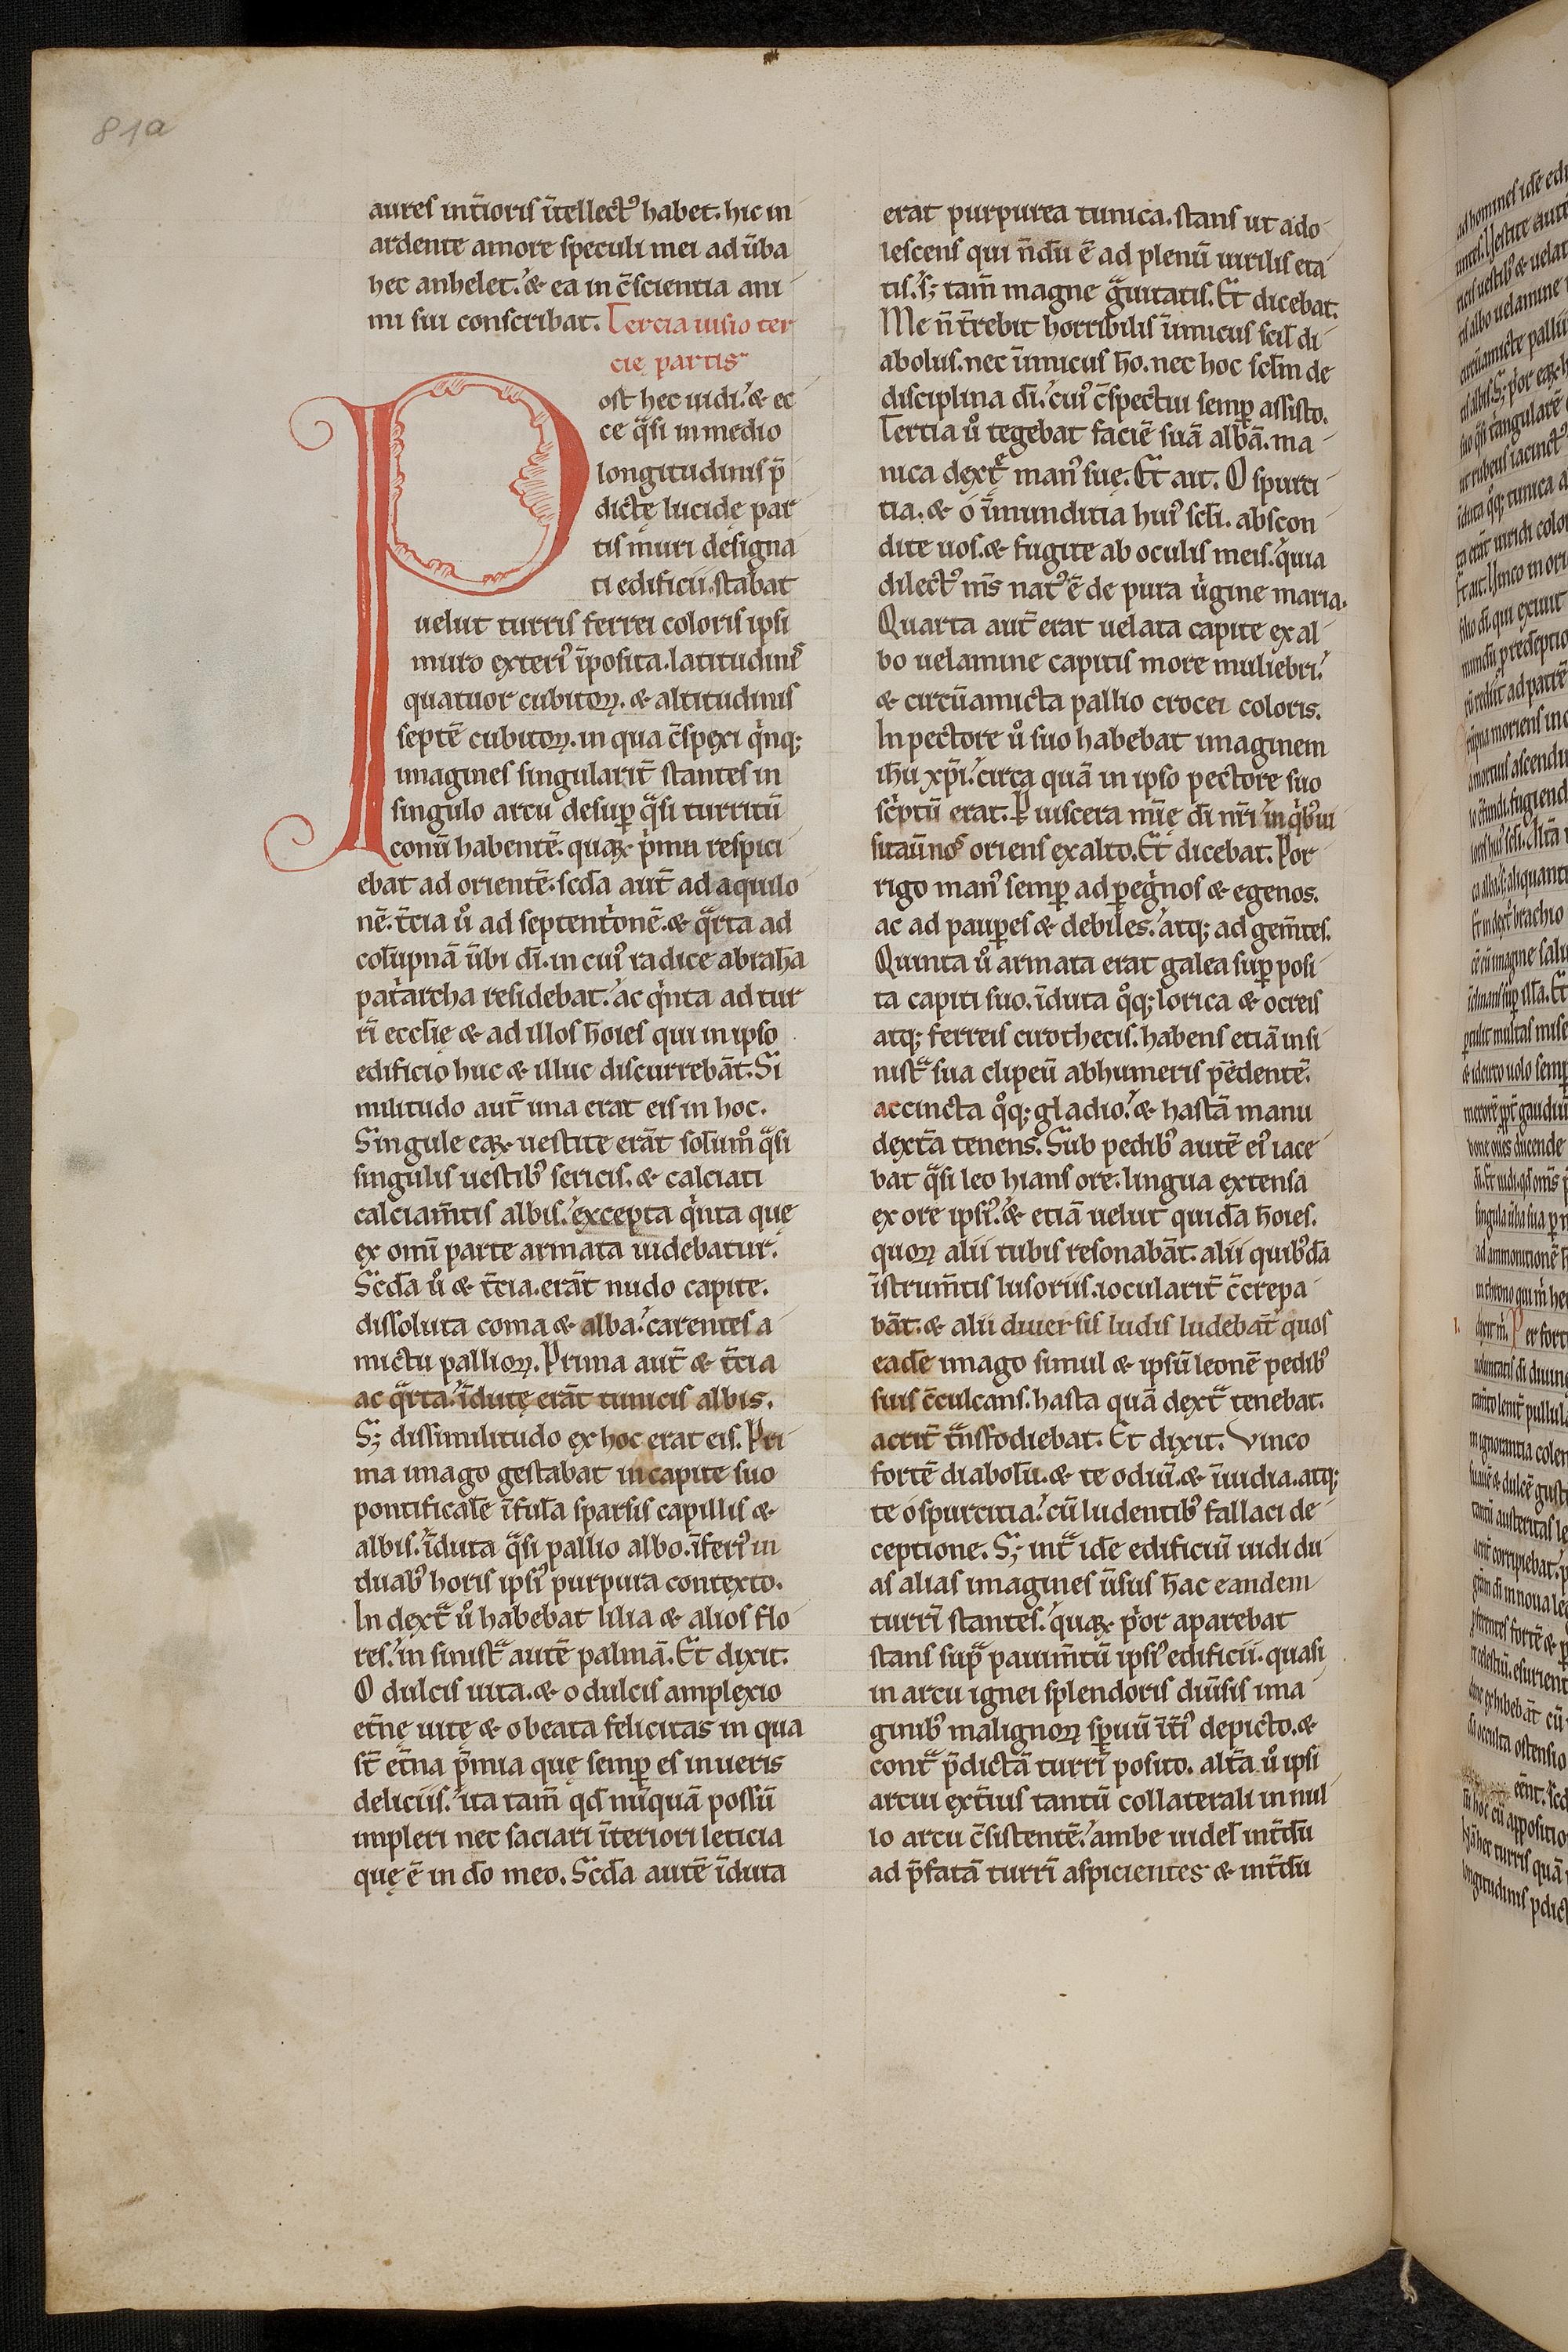 81a
aures int̄ioris ītellectꝰ habet. hic in
ardente amore speculi mei ad ūba
hec anhelet. & ea in c̄scientia ani
mi sui conscribat. Tercia uisio ter
cię partis
Post hec uidi. & ec
ce qͣsi in medio
longitudinis p̄
dictę lucidę par
tis muri designa
ti edificii. stabat
uelut turris ferrei coloris ipsi
muro exteriꝰ īposita. latitudinis
quatuor cubitoꝝ. & altitudinis
septē cubitoꝝ. in qua c̄spexi qͥnqꝫ
imagines singularit̄ stantes in
singulo arcu desuꝑ qͣsi turritū
conū habentē. quaꝝ pͥma respici
ebat ad orientē. scd̄a aut̄ ad aquilo
nē. t̄cia uͦ ad septentͥonē. & qͣrta ad
colūpnā ūbi dī. in cuiꝰ radice abrahā
patͥarcha residebat. ac qͥnta ad tur
rī ecclīe & ad illos hōies qui in ipso
edificio huc & illuc discurrebāt. Si
militudo aut̄ una erat eis in hoc.
Singule eaꝝ uestite erāt solūmͦ qͣsi
singulis uestibꝰ sericis. & calciati
calciam̄tis albis. excepta qͥnta quę
ex omī parte armata uidebatur.
Scd̄a uͦ & t̄cia. erāt nudo capite.
dissoluta coma & alba. carentes a
mictu pallioꝝ. Prima aut̄ & t̄cia
ac qͣrta. īdutę erāt tunicis albis.
Sꝫ dissimilitudo ex hoc erat eis. Pri
ma imago gestabat in capite suo
pontificalē īfulā sparsis capillis &
albis. īduta qͣsi pallio albo. īferiꝰ in
duabꝰ horis ipsiꝰ purpura contexto.
In dextͣ uͦ habebat lilia & alios flo
res. in sinistͣ autē palmā. Et dixit.
O dulcis uita. & o dulcis amplexio
et̄nę uitę & o beata felicitas in qua
st̄ et̄na p̄mia quę semꝑ es in ueris
deliciis. ita tam̄ qd̄ nūquā possū
impleri nec saciari īteriori leticia
quę ē in dō meo. Scd̄a autē īduta
erat purpurea tunica. stans ut ado
lescens qui n̄dū ē ad plenū uirilis eta
tis. sꝫ tam̄ magne gͣuitatis. Et dicebat.
Me n̄ t̄rebit horribilis īimicus scil̄ di
abolus. nec īimicus hō. nec hoc scl̄m de
disciplina dī. cuiꝰ c̄spectui semꝑ assisto.
Tertia uͦ tegebat faciē suā albā. ma
nica dextͤ manꝰ suę. Et ait. O spurci
tia. & o īmunditia huiꝰ scl̄i. abscon
dite uos. & fugite ab oculis meis. quia
dilectꝰ m̄s natꝰ ē de pura uͥgine maria.
Quarta aut̄ erat uelata capite ex al
bo uelamine capitis more muliebri.
& circūamicta pallio crocei coloris.
In pectore uͦ suo habebat imaginem
ih̄u xp̄i. circa quā in ipso pectore suo
scͥptū erat. P̲ uiscera mīę dī nr̄i in qͥbꝰ ui
sitaūnoˢ oriens ex alto. Et dicebat. Por
rigo manꝰ semꝑ ad peregͥnos & egenos.
ac ad pauꝑes & debiles. atqꝫ ad gem̄tes.
Quinta uͦ armata erat galea suꝑ posi
ta capiti suo. īduta qͦqꝫ lorica & ocreis
atqꝫ ferreis cirothecis. habens etiā in si
nistͣ sua clipeū ab humeris pēdentē.
accincta qͦqꝫ gladio. & hastā manu
dext̄a tenens. Sub pedibꝰ autē eiꝰ iace
bat qͣsi leo hians ore. lingua extensa
ex ore ipsiꝰ. & etiā uelut quidā hōies.
quoꝝ alii tubis resonabāt. alii quibꝰdā
īstrum̄tis lusoriis. iocularit̄ c̄crepa
bāt. & alii diuersis ludis ludebāt quos
eadē imago simul & ipsū leonē pedibꝰ
suis c̄culcans. hasta quā dextͣ tenebat.
acrit̄ tͣnsfodiebat. Et dixit. Vinco
fortē diabolū. & te odiū. & īuidia. atqꝫ
te o spurcitia. cū ludentibꝰ fallaci de
ceptione. Sꝫ intͣ idē edificiū uidi du
as alias imagines ūsus hāc eandem
turrī stantes. quaꝝ pͥor aparebat
stans supͣ pauim̄tū ipsiꝰ edificii. quasi
in arcu ignei splendoris diūsis ima
ginibꝰ malignoꝝ spūū īt̄iꝰ depicto. &
contͣ p̄dictā turrī posito. alt̄a uͦ ipsi
arcui ext̄ius tantū collaterali in nul
lo arcu c̄sistentē. ambe uidel̄ int̄dū
ad p̄fatā turrī aspicientes & int̄dū